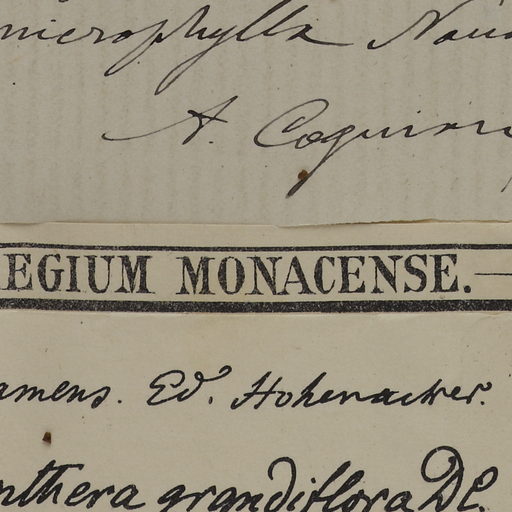 microphylla Naud
A. Coquimi
EGIUM MONACENSE.
amens. Ed. Hohenacker.
nthera grandiflora DC.